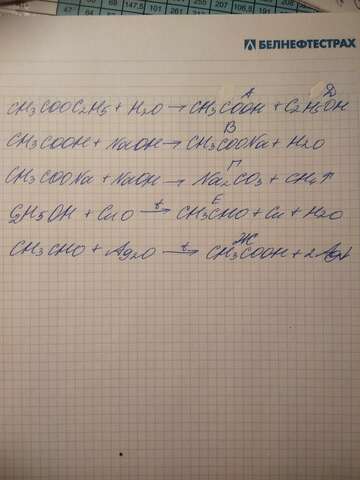 147,5 101
БЕЛНЕФТЕСТРАХ
А Д
CH3COOC2H5 + H2O → CH3COOH + C2H5OH
В
CH3COOH + NaOH → CH3COONa + H2O
Г
CH3COONa + NaOH → Na2CO3 + CH4↑
Е
C2H5OH + CuO t→ CH3CHO + Cu + H2O
Ж
CH3CHO + Ag2O t→ CH3COOH + 2Ag↓